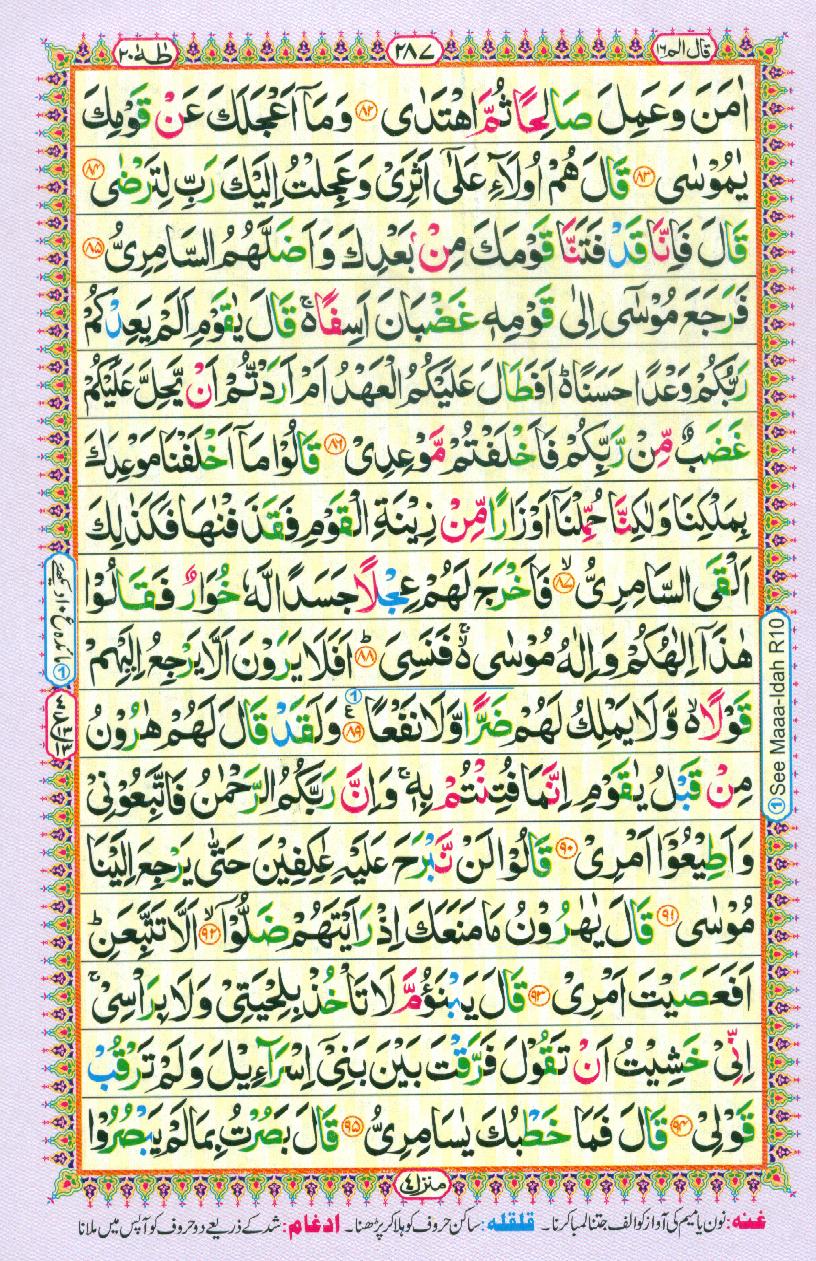 قال الم ١٦
٢٨٧
طٰهٰ ٢٠
اٰمَنَ وَعَمِلَ صَالِحًا ثُمَّ اهْتَدٰى ﴿٨٢﴾ وَمَآ اَعْجَلَكَ عَنْ قَوْمِكَ
يٰمُوْسٰى ﴿٨٣﴾ قَالَ هُمْ اُولَآءِ عَلٰٓى اَثَرِىْ وَعَجِلْتُ اِلَيْكَ رَبِّ لِتَرْضٰى ﴿٨٤﴾
قَالَ فَاِنَّا قَدْ فَتَنَّا قَوْمَكَ مِنْۢ بَعْدِكَ وَاَضَلَّهُمُ السَّامِرِىُّ ﴿٨٥﴾
فَرَجَعَ مُوْسٰٓى اِلٰى قَوْمِهٖ غَضْبَانَ اَسِفًا ۬ۚ قَالَ يٰقَوْمِ اَلَمْ يَعِدْكُمْ
رَبُّكُمْ وَعْدًا حَسَنًا ۬ؕ اَفَطَالَ عَلَيْكُمُ الْعَهْدُ اَمْ اَرَدْتُّمْ اَنْ يَّحِلَّ عَلَيْكُمْ
غَضَبٌ مِّنْ رَّبِّكُمْ فَاَخْلَفْتُمْ مَّوْعِدِىْ ﴿٨٦﴾ قَالُوْا مَآ اَخْلَفْنَا مَوْعِدَكَ
بِمَلْكِنَا وَلٰكِنَّا حُمِّلْنَآ اَوْزَارًا مِّنْ زِيْنَةِ الْقَوْمِ فَقَذَفْنٰهَا فَكَذٰلِكَ
اَلْقَى السَّامِرِىُّ ۙ﴿٨٧﴾ فَاَخْرَجَ لَهُمْ عِجْلًا جَسَدًا لَّهٗ خُوَارٌ فَقَالُوْا
هٰذَآ اِلٰهُكُمْ وَاِلٰهُ مُوْسٰى ۬ۚ فَنَسِىَ ﴿٨٨﴾ؕ اَفَلَا يَرَوْنَ اَلَّا يَرْجِعُ اِلَيْهِمْ
قَوْلًا ۬ۙ وَّلَا يَمْلِكُ لَهُمْ ضَرًّا وَّلَا نَفْعًا ﴿٨٩﴾ وَلَقَدْ قَالَ لَهُمْ هٰرُوْنُ
مِنْ قَبْلُ يٰقَوْمِ اِنَّمَا فُتِنْتُمْ بِهٖ ۚ وَاِنَّ رَبَّكُمُ الرَّحْمٰنُ فَاتَّبِعُوْنِىْ
وَاَطِيْعُوْٓا اَمْرِىْ ﴿٩٠﴾ قَالُوْا لَنْ نَّبْرَحَ عَلَيْهِ عٰكِفِيْنَ حَتّٰى يَرْجِعَ اِلَيْنَا
مُوْسٰى ﴿٩١﴾ قَالَ يٰهٰرُوْنُ مَا مَنَعَكَ اِذْ رَاَيْتَهُمْ ضَلُّوْٓا ۙ﴿٩٢﴾ اَلَّا تَتَّبِعَنِ ؕ
اَفَعَصَيْتَ اَمْرِىْ ﴿٩٣﴾ قَالَ يَبْنَؤُمَّ لَا تَاْخُذْ بِلِحْيَتِىْ وَلَا بِرَاْسِىْ ۚ
اِنِّىْ خَشِيْتُ اَنْ تَقُوْلَ فَرَّقْتَ بَيْنَ بَنِىْٓ اِسْرَآءِيْلَ وَلَمْ تَرْقُبْ
قَوْلِىْ ﴿٩٤﴾ قَالَ فَمَا خَطْبُكَ يٰسَامِرِىُّ ﴿٩٥﴾ قَالَ بَصُرْتُ بِمَا لَمْ يَبْصُرُوْا
① See Maaa-Idah R10
منزل ٤
غنہ: نون یا میم کی آواز کو الف جتنا لمبا کرنا۔ قلقلہ: ساکن حروف کو ہلا کر پڑھنا۔ ادغام: شد کے ذریعے دو حروف کو آپس میں ملانا